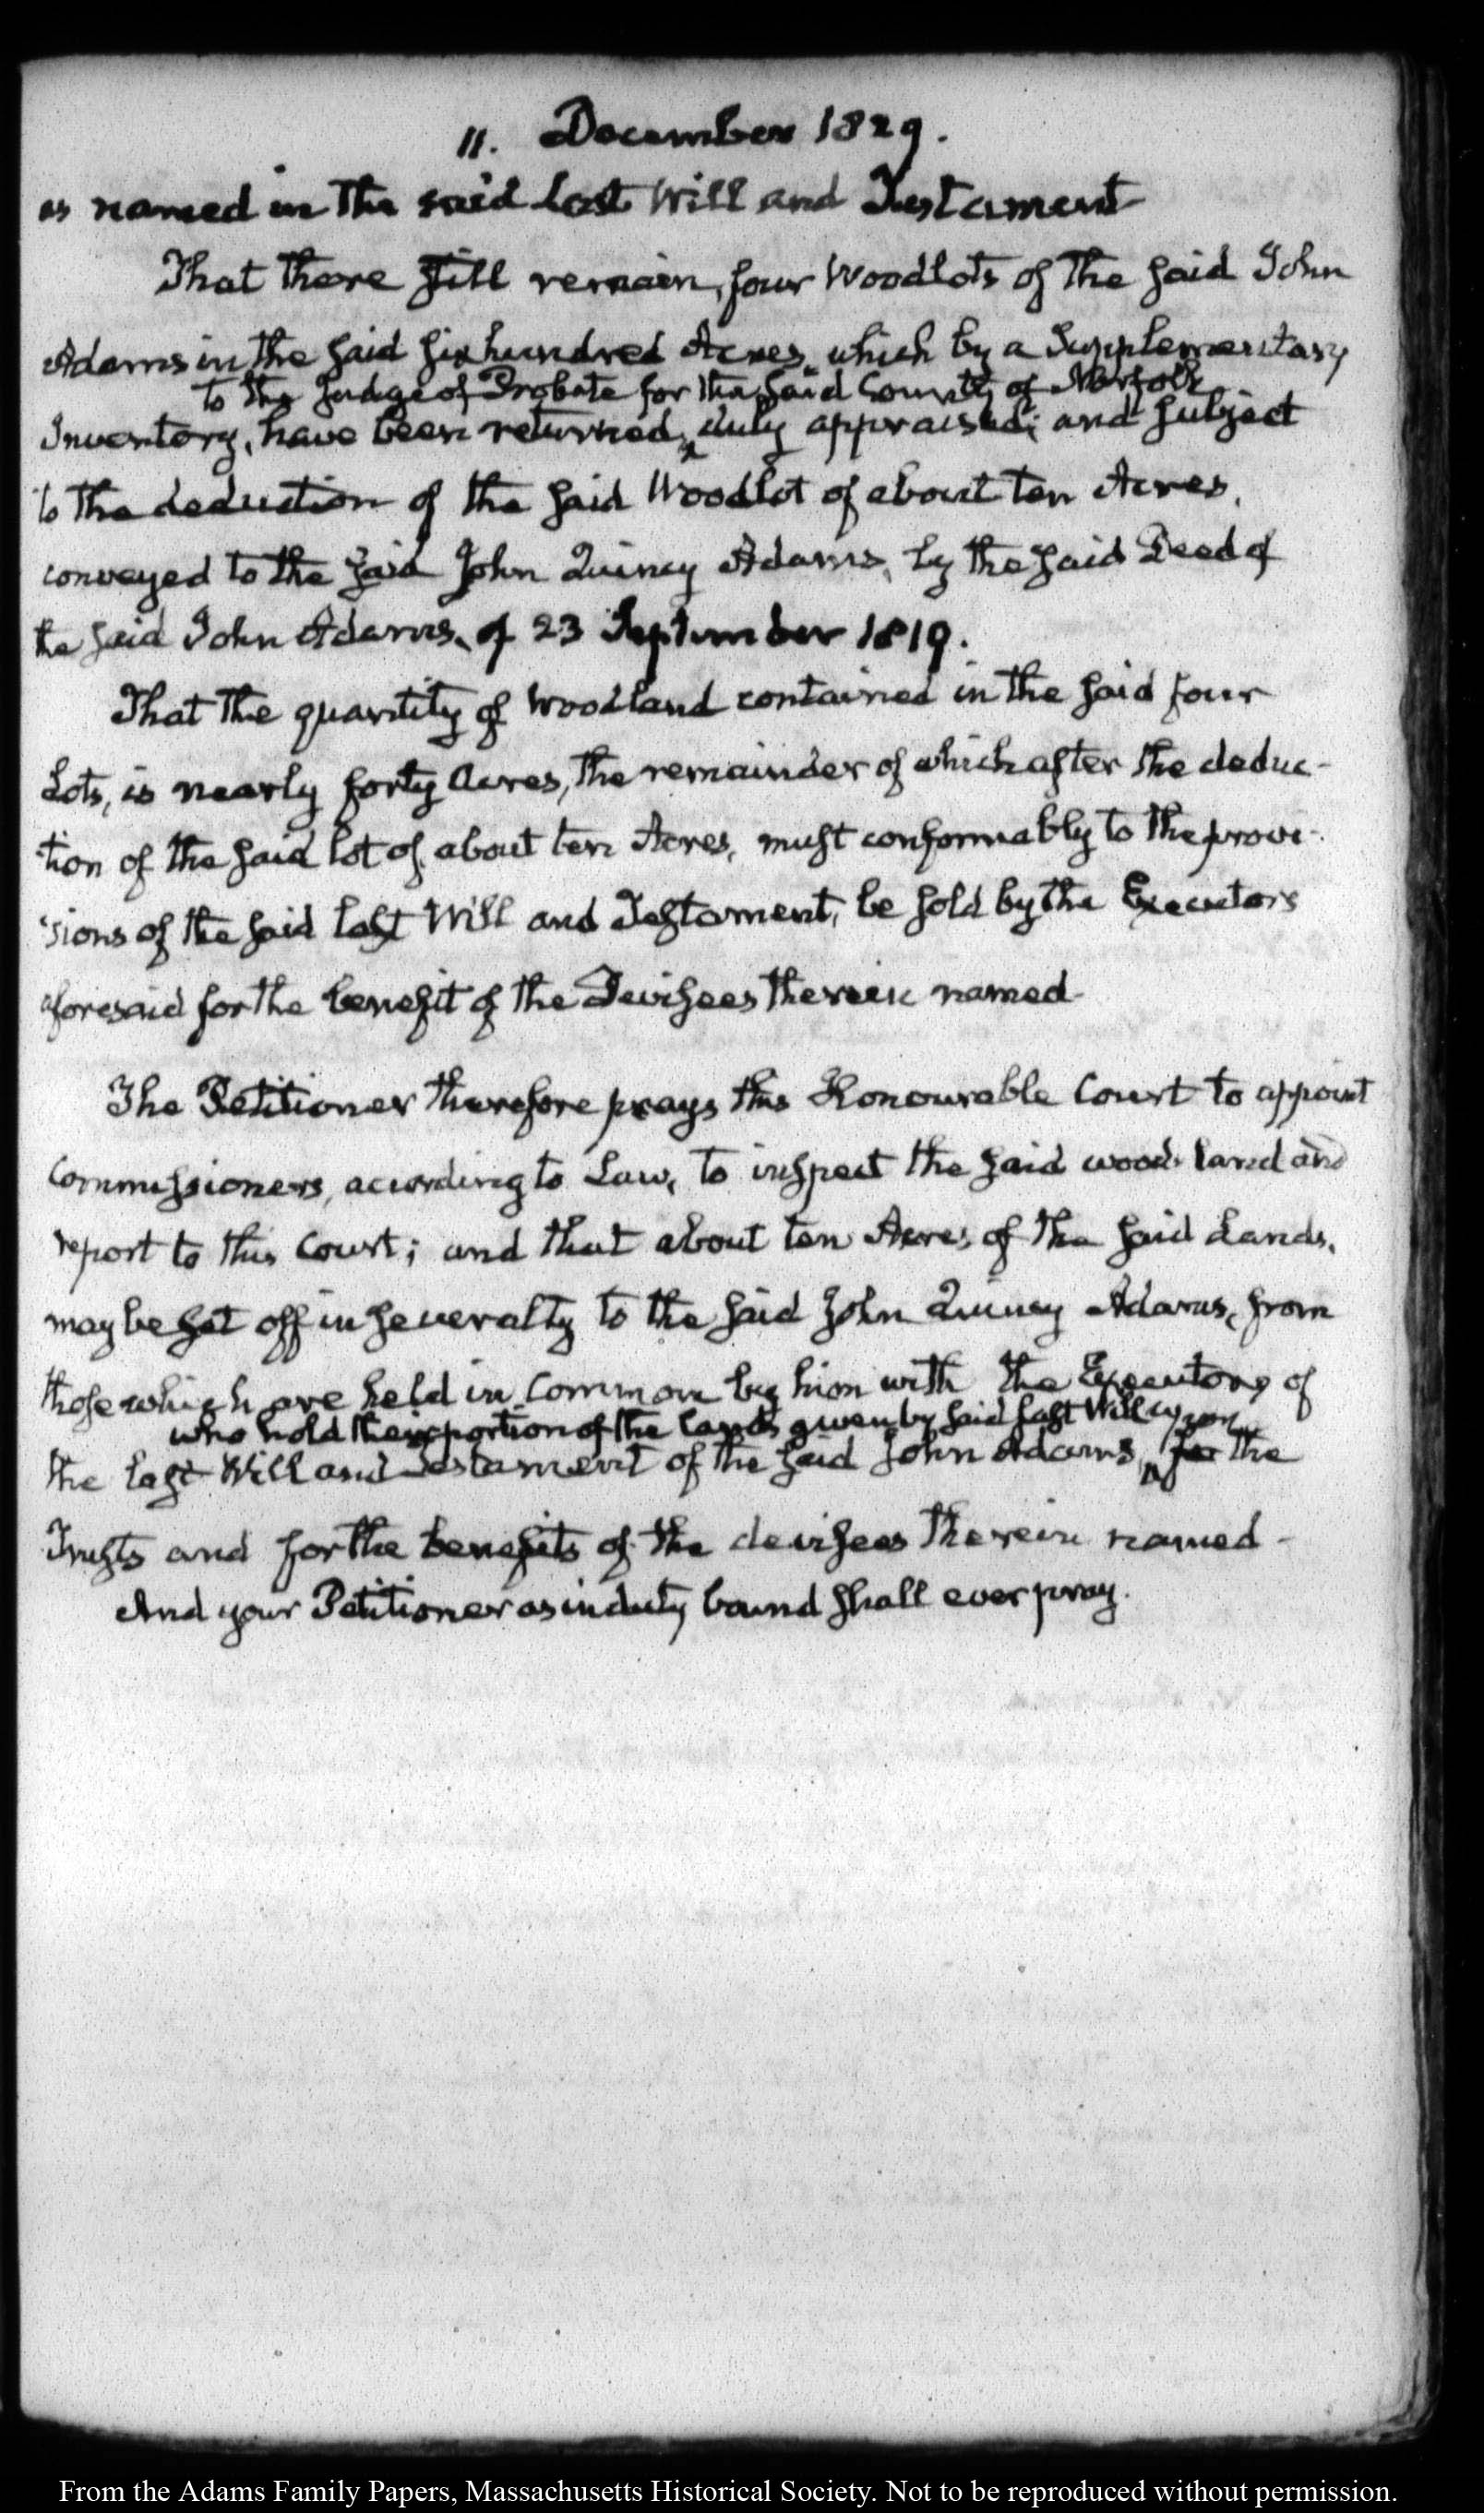 11. December 1829.
as named in the said last Will and Testament
That there still remain, four Woodlots of the said John
Adams in the said six hundred Acres, which by a Supplementary
to the Judge of Probate for the said County of Norfolk
Inventory, have been returned, ^ duly appraised; and subject
to the deduction of the said Woodlot of about ten Acres,
conveyed to the said John Quincy Adams, by the said Deed of
the said John Adams, of 23 September 1819.
That the quantity of Woodland contained in the said four
Lots, is nearly forty Acres, the remainder of which after the deduc-
tion of the said lot of about ten Acres, must conformably to the provi-
sions of the said last Will and Testament, be sold by the Executors
aforesaid for the benefit of the Devisees therein named
The Petitioner therefore prays this Honourable Court to appoint
Commissioners, according to Law, to inspect the said wood land and
report to this Court; and that about ten Acres of the said Lands,
may be set off in severalty to the said John Quincy Adams, from
those which are held in Common by him with the Executors of
who hold their portion of the lands given by said last Will upon
the last Will and Testament of the said John Adams, ^ for the
Trusts and for the benefits of the devisees therein named -
And your Petitioner as in duty bound shall ever pray.
From the Adams Family Papers, Massachusetts Historical Society. Not to be reproduced without permission.